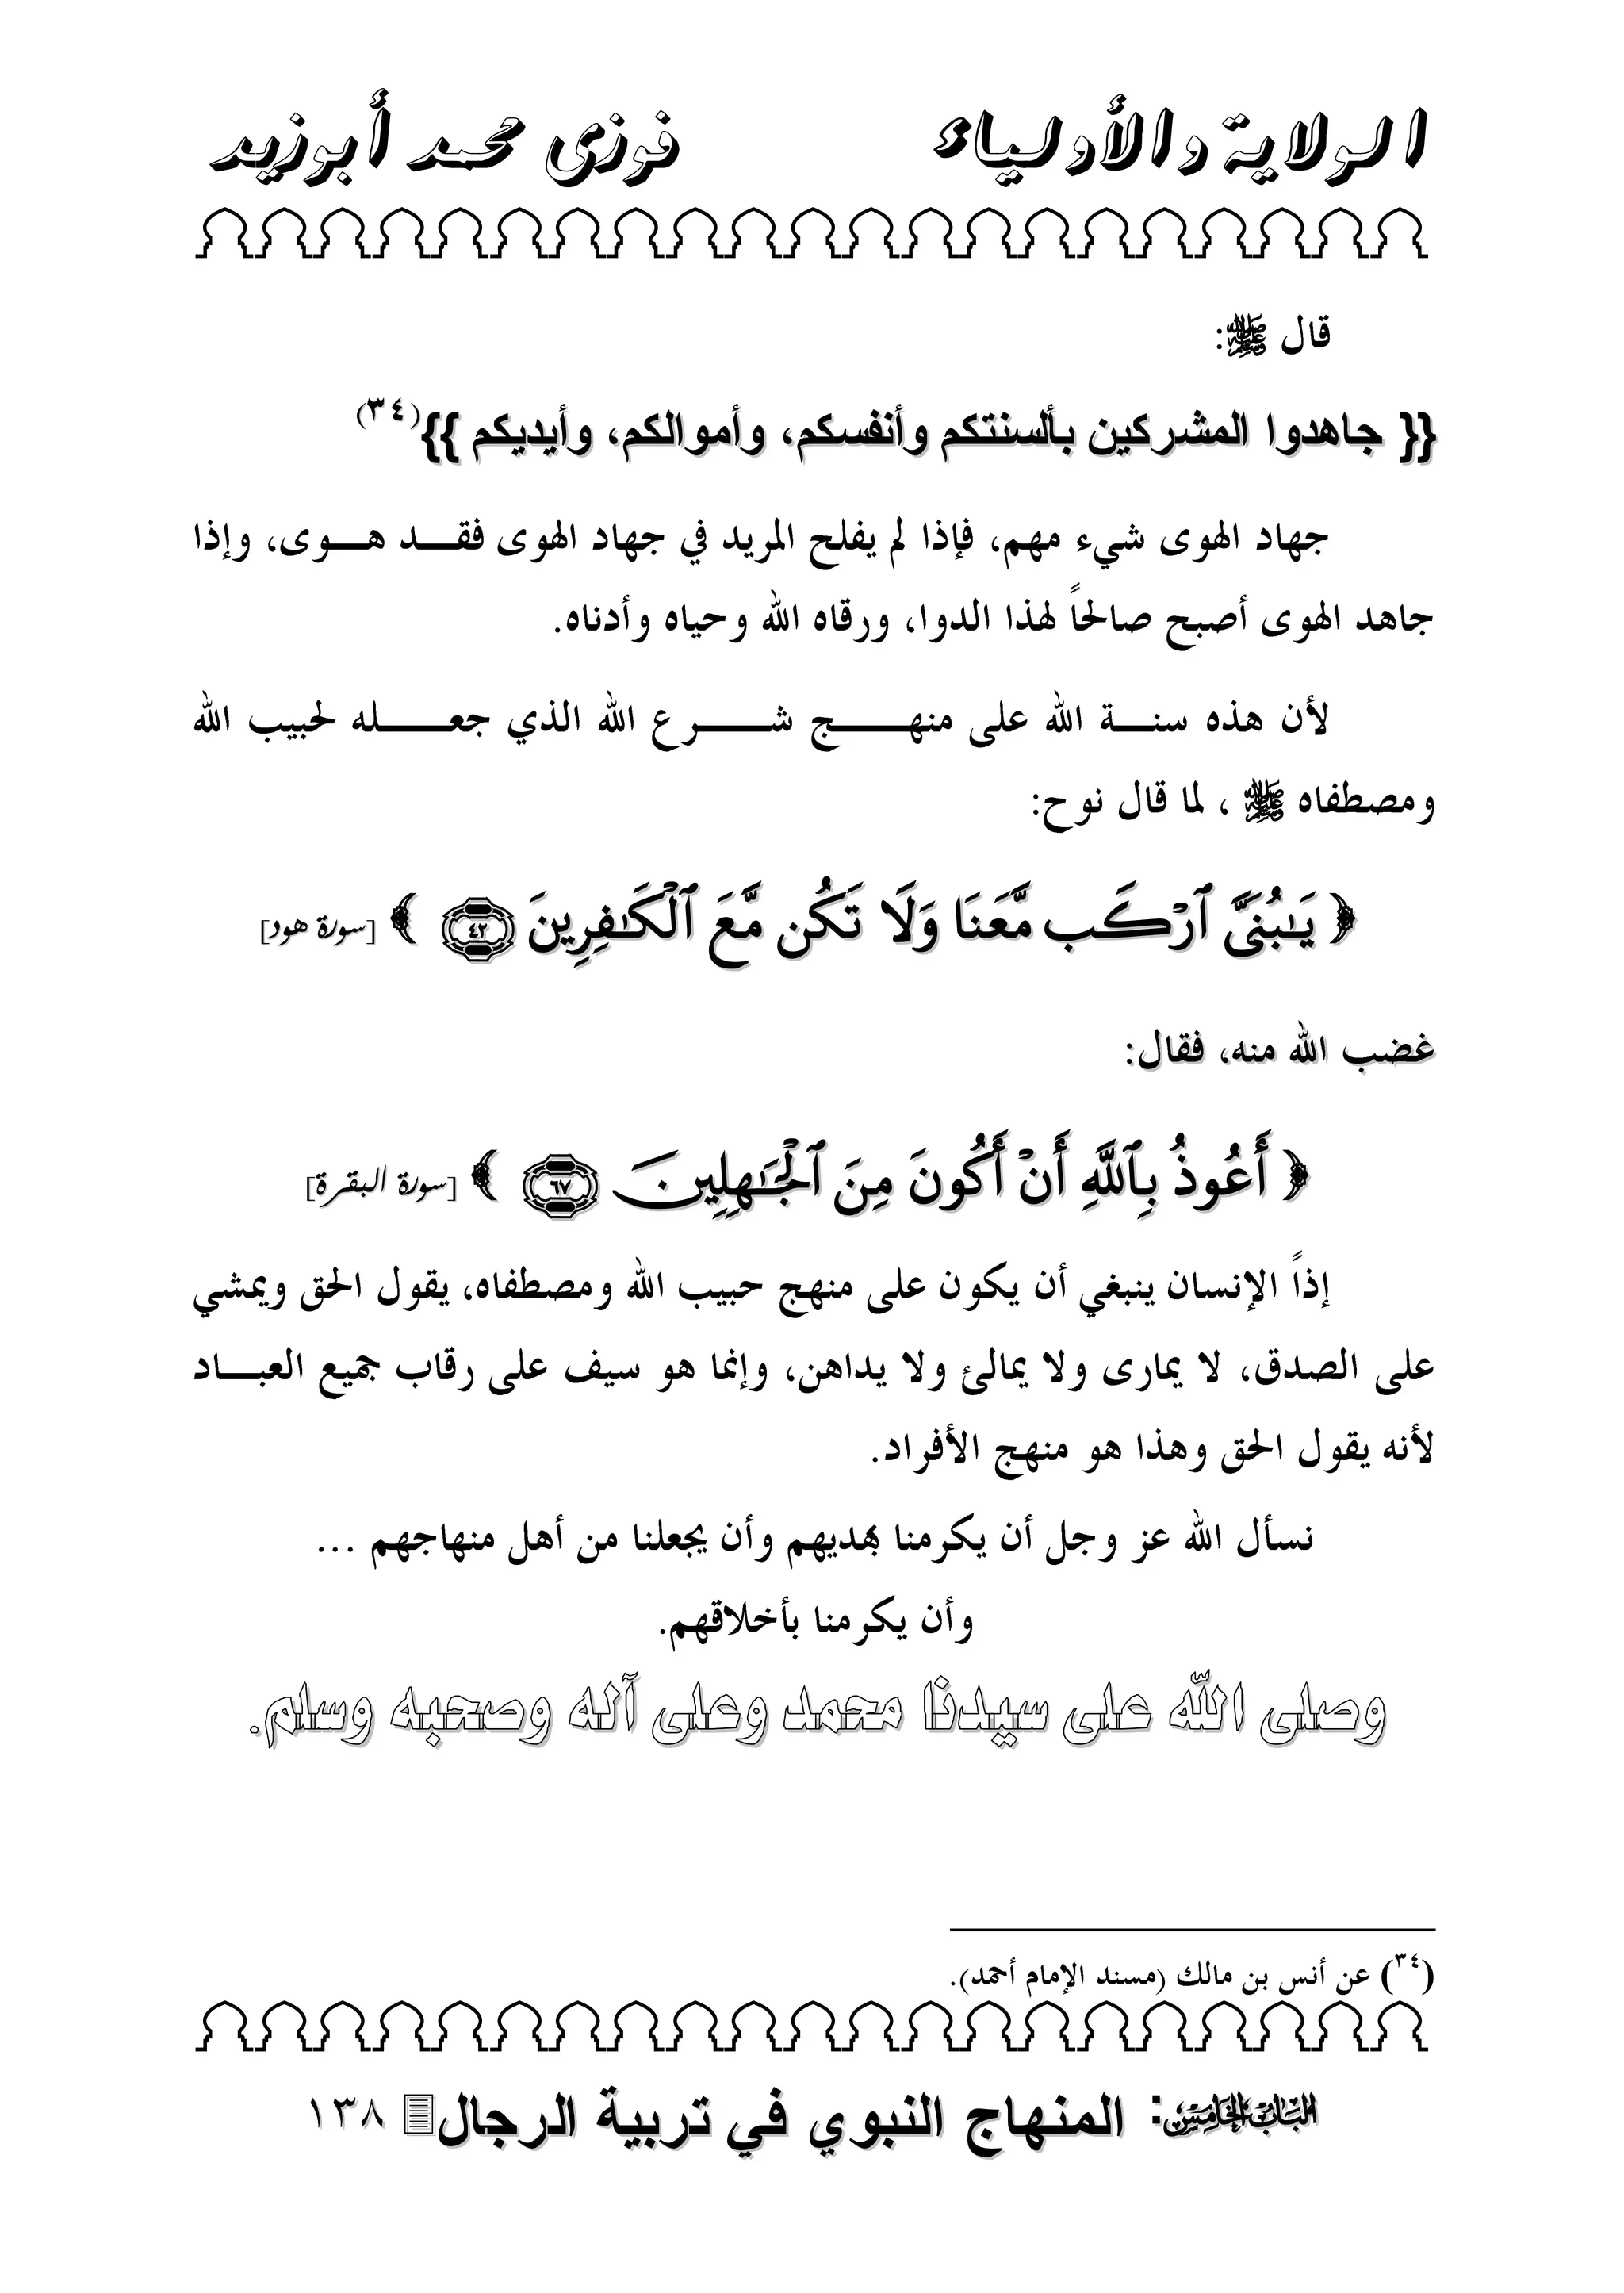 الولاية والأولياء فوزى محمد أبوزيد
قال ﷺ:
{{ جاهدوا المشركين بألسنتكم وأنفسكم، وأموالكم، وأيديكم }}(٣٤)
جهاد الهوى شيء مهم، فإذا لم يفلح المريد في جهاد الهوى فقـــد هـــوى، وإذا
جاهد الهوى أصبح صالحاً لهذا الدوا، ورقاه الله وحياه وأدناه.
لأن هذه سنـــة الله على منهـــــج شـــــرع الله الذي جعـــــله لحبيب الله
ومصطفاه ﷺ ، لما قال نوح:
﴿ يَٰبُنَىَّ ٱرْكَب مَّعَنَا وَلَا تَكُن مَّعَ ٱلْكَٰفِرِينَ ٤٢ ﴾ [سورة هود]
غضب الله منه، فقال:
﴿ أَعُوذُ بِٱللَّهِ أَنْ أَكُونَ مِنَ ٱلْجَٰهِلِينَ ٦٧ ﴾ [سورة البقرة]
إذاً الإنسان ينبغي أن يكون على منهج حبيب الله ومصطفاه، يقول الحق ويمشي
على الصدق، لا يمارى ولا يمالئ ولا يداهن، وإنما هو سيف على رقاب جميع العبـــاد
لأنه يقول الحق وهذا هو منهج الأفراد.
نسأل الله عز وجل أن يكرمنا بهديهم وأن يجعلنا من أهل منهاجهم ...
وأن يكرمنا بأخلاقهم.
وصلى الله على سيدنا محمد وعلى آله وصحبه وسلم.
(٣٤) عن أنس بن مالك (مسند الإمام أحمد).
الباب الخامس: المنهاج النبوي في تربية الرجال ١٣٨